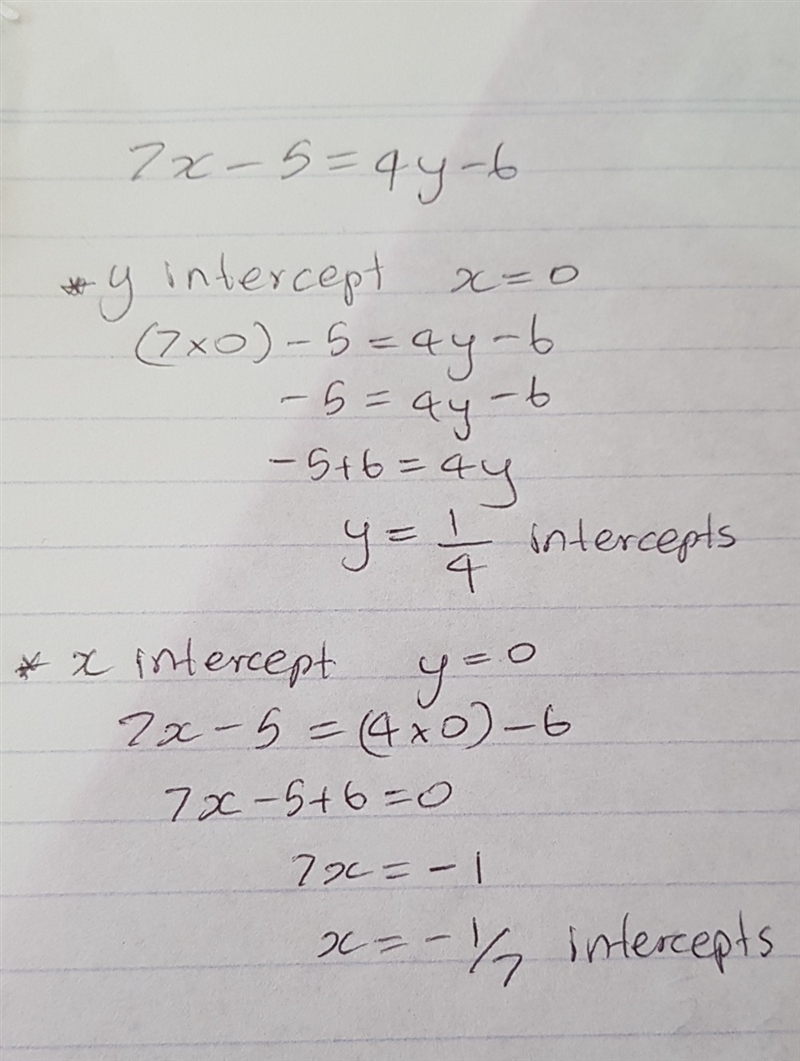 7x - 5 = 4y - 6
* y intercept x = 0
(7 × 0) - 5 = 4y - 6
- 5 = 4y - 6
- 5 + 6 = 4y
y = 1/4 intercepts
* x intercept y = 0
7x - 5 = (4 × 0) - 6
7x - 5 + 6 = 0
7x = - 1
x = - 1/7 intercepts